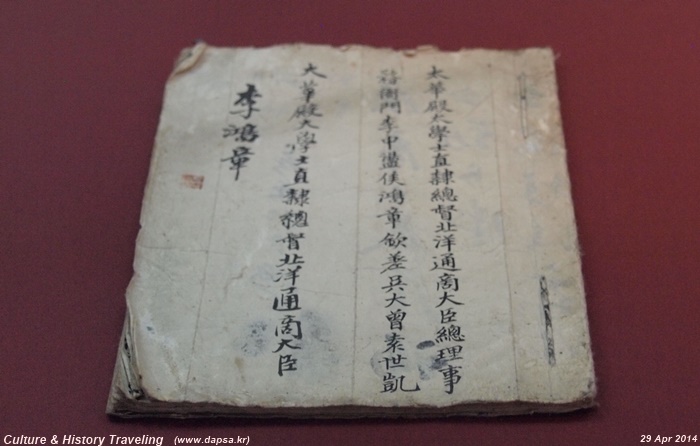 太華殿大學士直隸總督北洋通商大臣總理事
務衙門李中堂侯鴻章欽差兵大曾袁世凱
大華殿大學士直隸總督北洋通商大臣
李鴻章
Culture & History Traveling (www.dapsa.kr)
29 Apr 2014